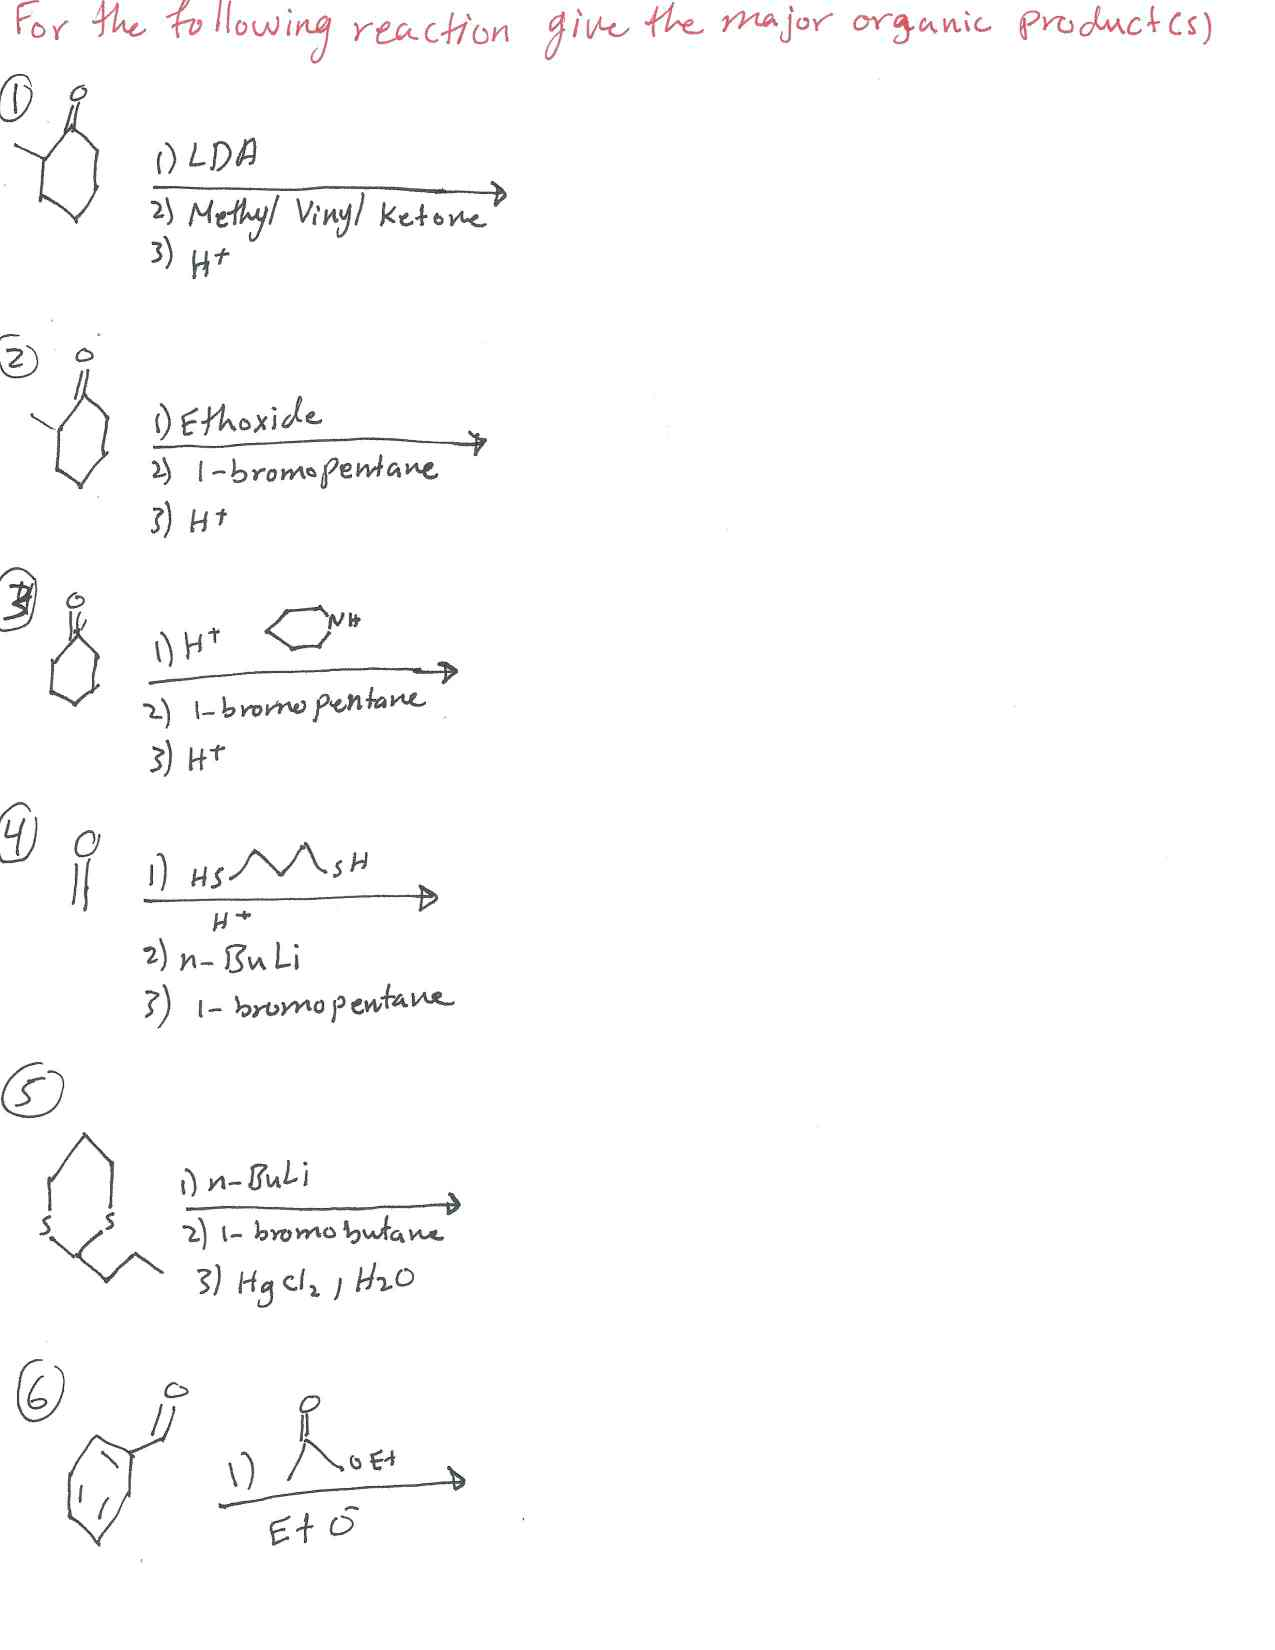 For the following reaction give the major organic product(s)
①
O
1) LDA
2) Methyl Vinyl Ketone
3) H+
②
O
1) Ethoxide
2) 1-bromopentane
3) H+
③
O
1) H+ NH
2) 1-bromopentane
3) H+
④
O
1) HS SH
H+
2) n-BuLi
3) 1-bromopentane
⑤
S S
1) n-BuLi
2) 1-bromobutane
3) HgCl₂, H₂O
⑥
O
O
1) OEt
EtO⁻